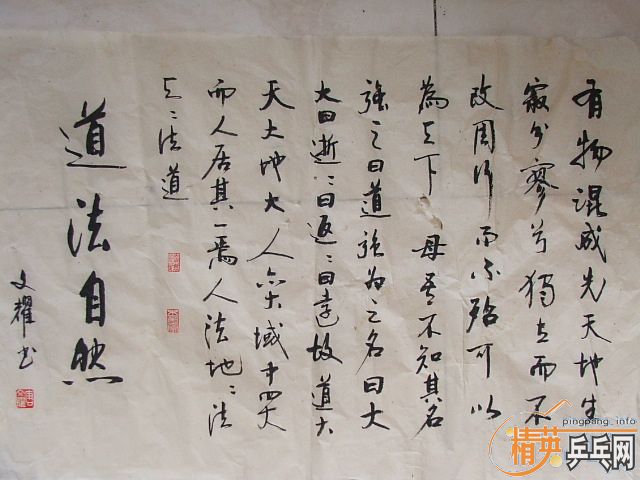 有物混成先天地生
寂兮寥兮獨立而不
改周行而不殆可以
為天下母吾不知其名
強之曰道強为之名曰大
大曰逝〻曰返〻曰遠故道大
天大地大人亦大域中四大
而人居其一焉人法地〻法
天〻法道
道法自然
文耀书
pingpang.info
精英乒乓网